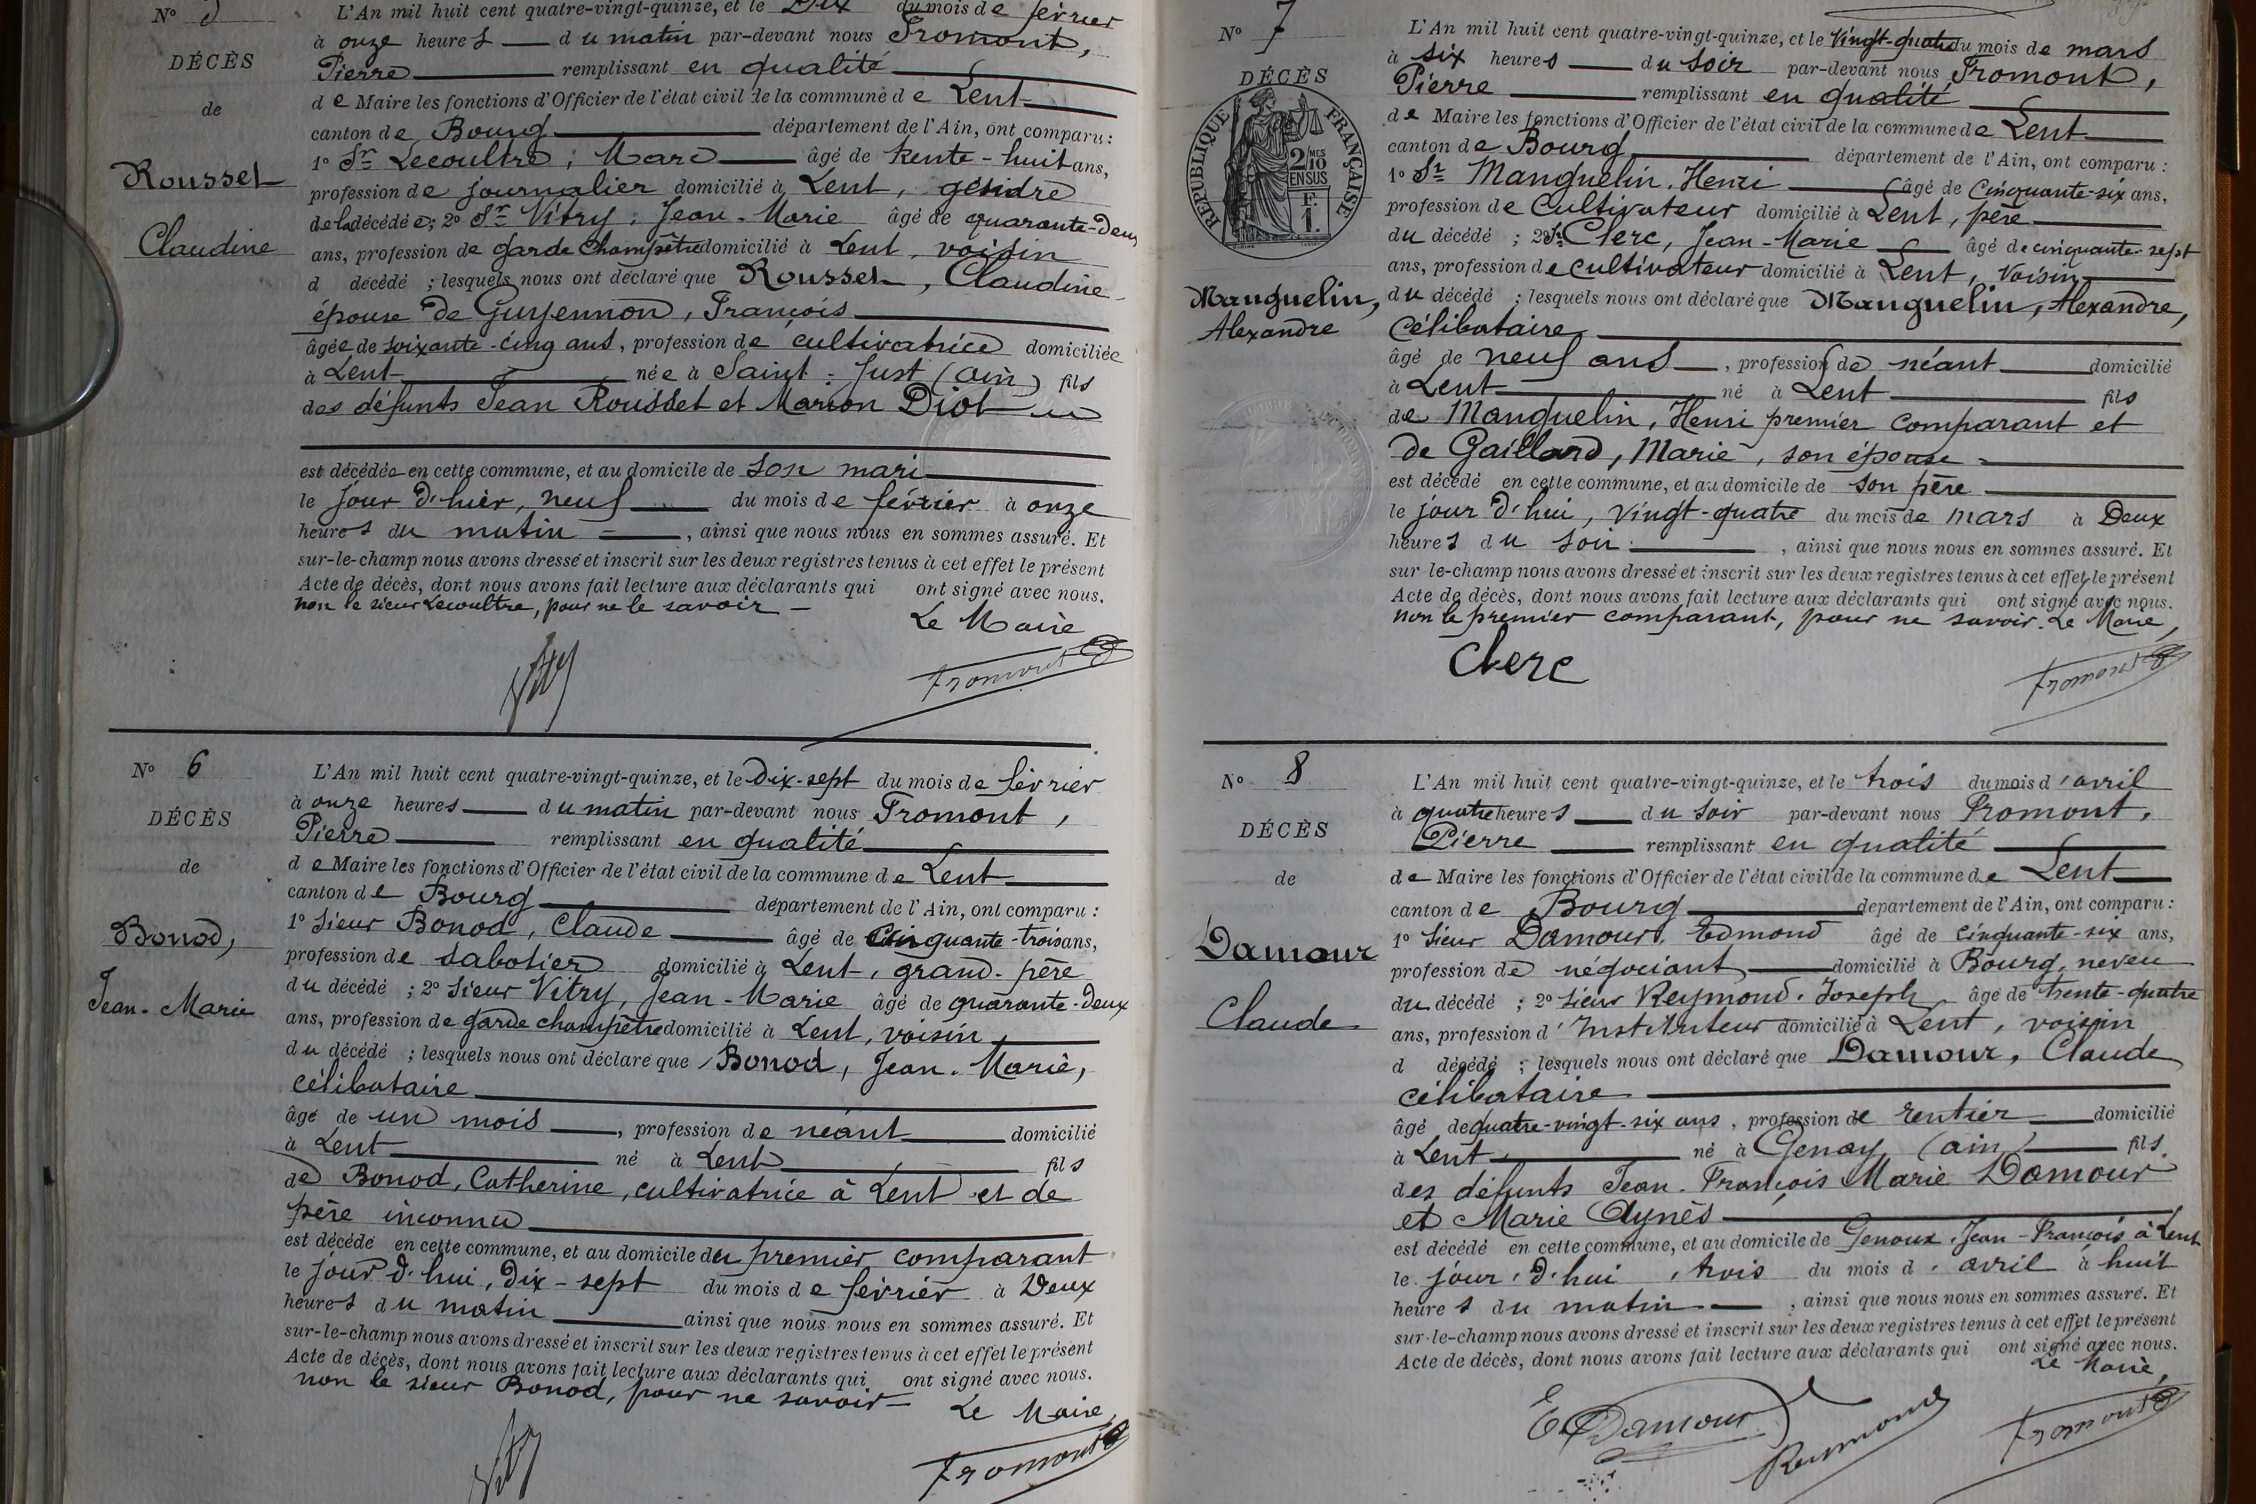 N° 5
DÉCÈS
de
Rousset
Claudine
L'An mil huit cent quatre-vingt-quinze, et le Dix du mois de février
à onze heures du matin par-devant nous Fromont,
Pierre remplissant en qualité
de Maire les fonctions d'Officier de l'état civil de la commune de Lent
canton de Bourg département de l'Ain, ont comparu :
1° Sr Lecoultre, Marc âgé de trente-huit ans,
profession de journalier domicilié à Lent, gendre
de la décédée ; 2° Sr Vitry, Jean-Marie âgé de quarante-deux
ans, profession de garde champêtre domicilié à Lent, voisin
d décédé ; lesquels nous ont déclaré que Rousset, Claudine
épouse de Guyennon, François
âgée de soixante-cinq ans, profession de cultivatrice domiciliée
à Lent née à Saint-Just (Ain) fils
des défunts Jean Rousset et Marion Diot
est décédée en cette commune, et au domicile de son mari
le jour d'hier, neuf du mois de février à onze
heures du matin , ainsi que nous nous en sommes assuré. Et
sur-le-champ nous avons dressé et inscrit sur les deux registres tenus à cet effet le présent
Acte de décès, dont nous avons fait lecture aux déclarants qui ont signé avec nous.
non le sieur Lecoultre, pour ne le savoir
Le Maire
Vitry
Fromont
N° 6
DÉCÈS
de
Bonod,
Jean-Marie
L'An mil huit cent quatre-vingt-quinze, et le Dix-sept du mois de février
à onze heures du matin par-devant nous Fromont,
Pierre remplissant en qualité
de Maire les fonctions d'Officier de l'état civil de la commune de Lent
canton de Bourg département de l'Ain, ont comparu :
1° Sieur Bonod, Claude âgé de cinquante-trois ans,
profession de sabotier domicilié à Lent, grand-père
du décédé ; 2° Sieur Vitry, Jean-Marie âgé de quarante-deux
ans, profession de garde champêtre domicilié à Lent, voisin
du décédé ; lesquels nous ont déclaré que Bonod, Jean-Marie,
célibataire
âgé de un mois , profession de néant domicilié
à Lent né à Lent fils
de Bonod, Catherine, cultivatrice à Lent et de
père inconnu
est décédé en cette commune, et au domicile du premier comparant
le jour d'hui, Dix-sept du mois de février à Deux
heures du matin ainsi que nous nous en sommes assuré. Et
sur-le-champ nous avons dressé et inscrit sur les deux registres tenus à cet effet le présent
Acte de décès, dont nous avons fait lecture aux déclarants qui ont signé avec nous.
non le sieur Bonod, pour ne savoir
Le Maire,
Vitry
Fromont
N° 7
DÉCÈS
RÉPUBLIQUE FRANÇAISE
2 MES 10
EN SUS
F. 1.
Manguelin,
Alexandre
L'An mil huit cent quatre-vingt-quinze, et le Vingt-quatre du mois de mars
à six heures du soir par-devant nous Fromont,
Pierre remplissant en qualité
de Maire les fonctions d'Officier de l'état civil de la commune de Lent
canton de Bourg département de l'Ain, ont comparu :
1° Sr Manguelin, Henri âgé de Cinquante-six ans,
profession de Cultivateur domicilié à Lent, père
du décédé ; 2° Sr Clerc, Jean-Marie âgé de cinquante-sept
ans, profession de cultivateur domicilié à Lent, voisin
du décédé ; lesquels nous ont déclaré que Manguelin, Alexandre,
Célibataire
âgé de neuf ans , profession de néant domicilié
à Lent né à Lent fils
de Manguelin, Henri premier comparant et
de Gaillard, Marie, son épouse
est décédé en cette commune, et au domicile de son père
le jour d'hui, vingt-quatre du mois de mars à Deux
heures du soir , ainsi que nous nous en sommes assuré. Et
sur-le-champ nous avons dressé et inscrit sur les deux registres tenus à cet effet le présent
Acte de décès, dont nous avons fait lecture aux déclarants qui ont signé avec nous.
non le premier comparant, pour ne savoir. Le Maire,
Clerc
Fromont
N° 8
DÉCÈS
de
Damour
Claude
L'An mil huit cent quatre-vingt-quinze, et le trois du mois d'avril
à quatre heures du soir par-devant nous Fromont,
Pierre remplissant en qualité
de Maire les fonctions d'Officier de l'état civil de la commune de Lent
canton de Bourg département de l'Ain, ont comparu :
1° Sieur Damour, Edmond âgé de cinquante-six ans,
profession de négociant domicilié à Bourg, neveu
du décédé ; 2° Sieur Reymond, Joseph âgé de trente-quatre
ans, profession d'Instituteur domicilié à Lent, voisin
d décédé ; lesquels nous ont déclaré que Damour, Claude
célibataire
âgé de quatre-vingt-six ans, profession de rentier domicilié
à Lent né à Genay (ain) fils
des défunts Jean-François Marie Damour
et Marie Aynès
est décédé en cette commune, et au domicile de Genoux, Jean-François à Lent
le jour d'hui, trois du mois d'avril à huit
heures du matin , ainsi que nous nous en sommes assuré. Et
sur-le-champ nous avons dressé et inscrit sur les deux registres tenus à cet effet le présent
Acte de décès, dont nous avons fait lecture aux déclarants qui ont signé avec nous.
Le Maire,
E. Damour
Reymond
Fromont